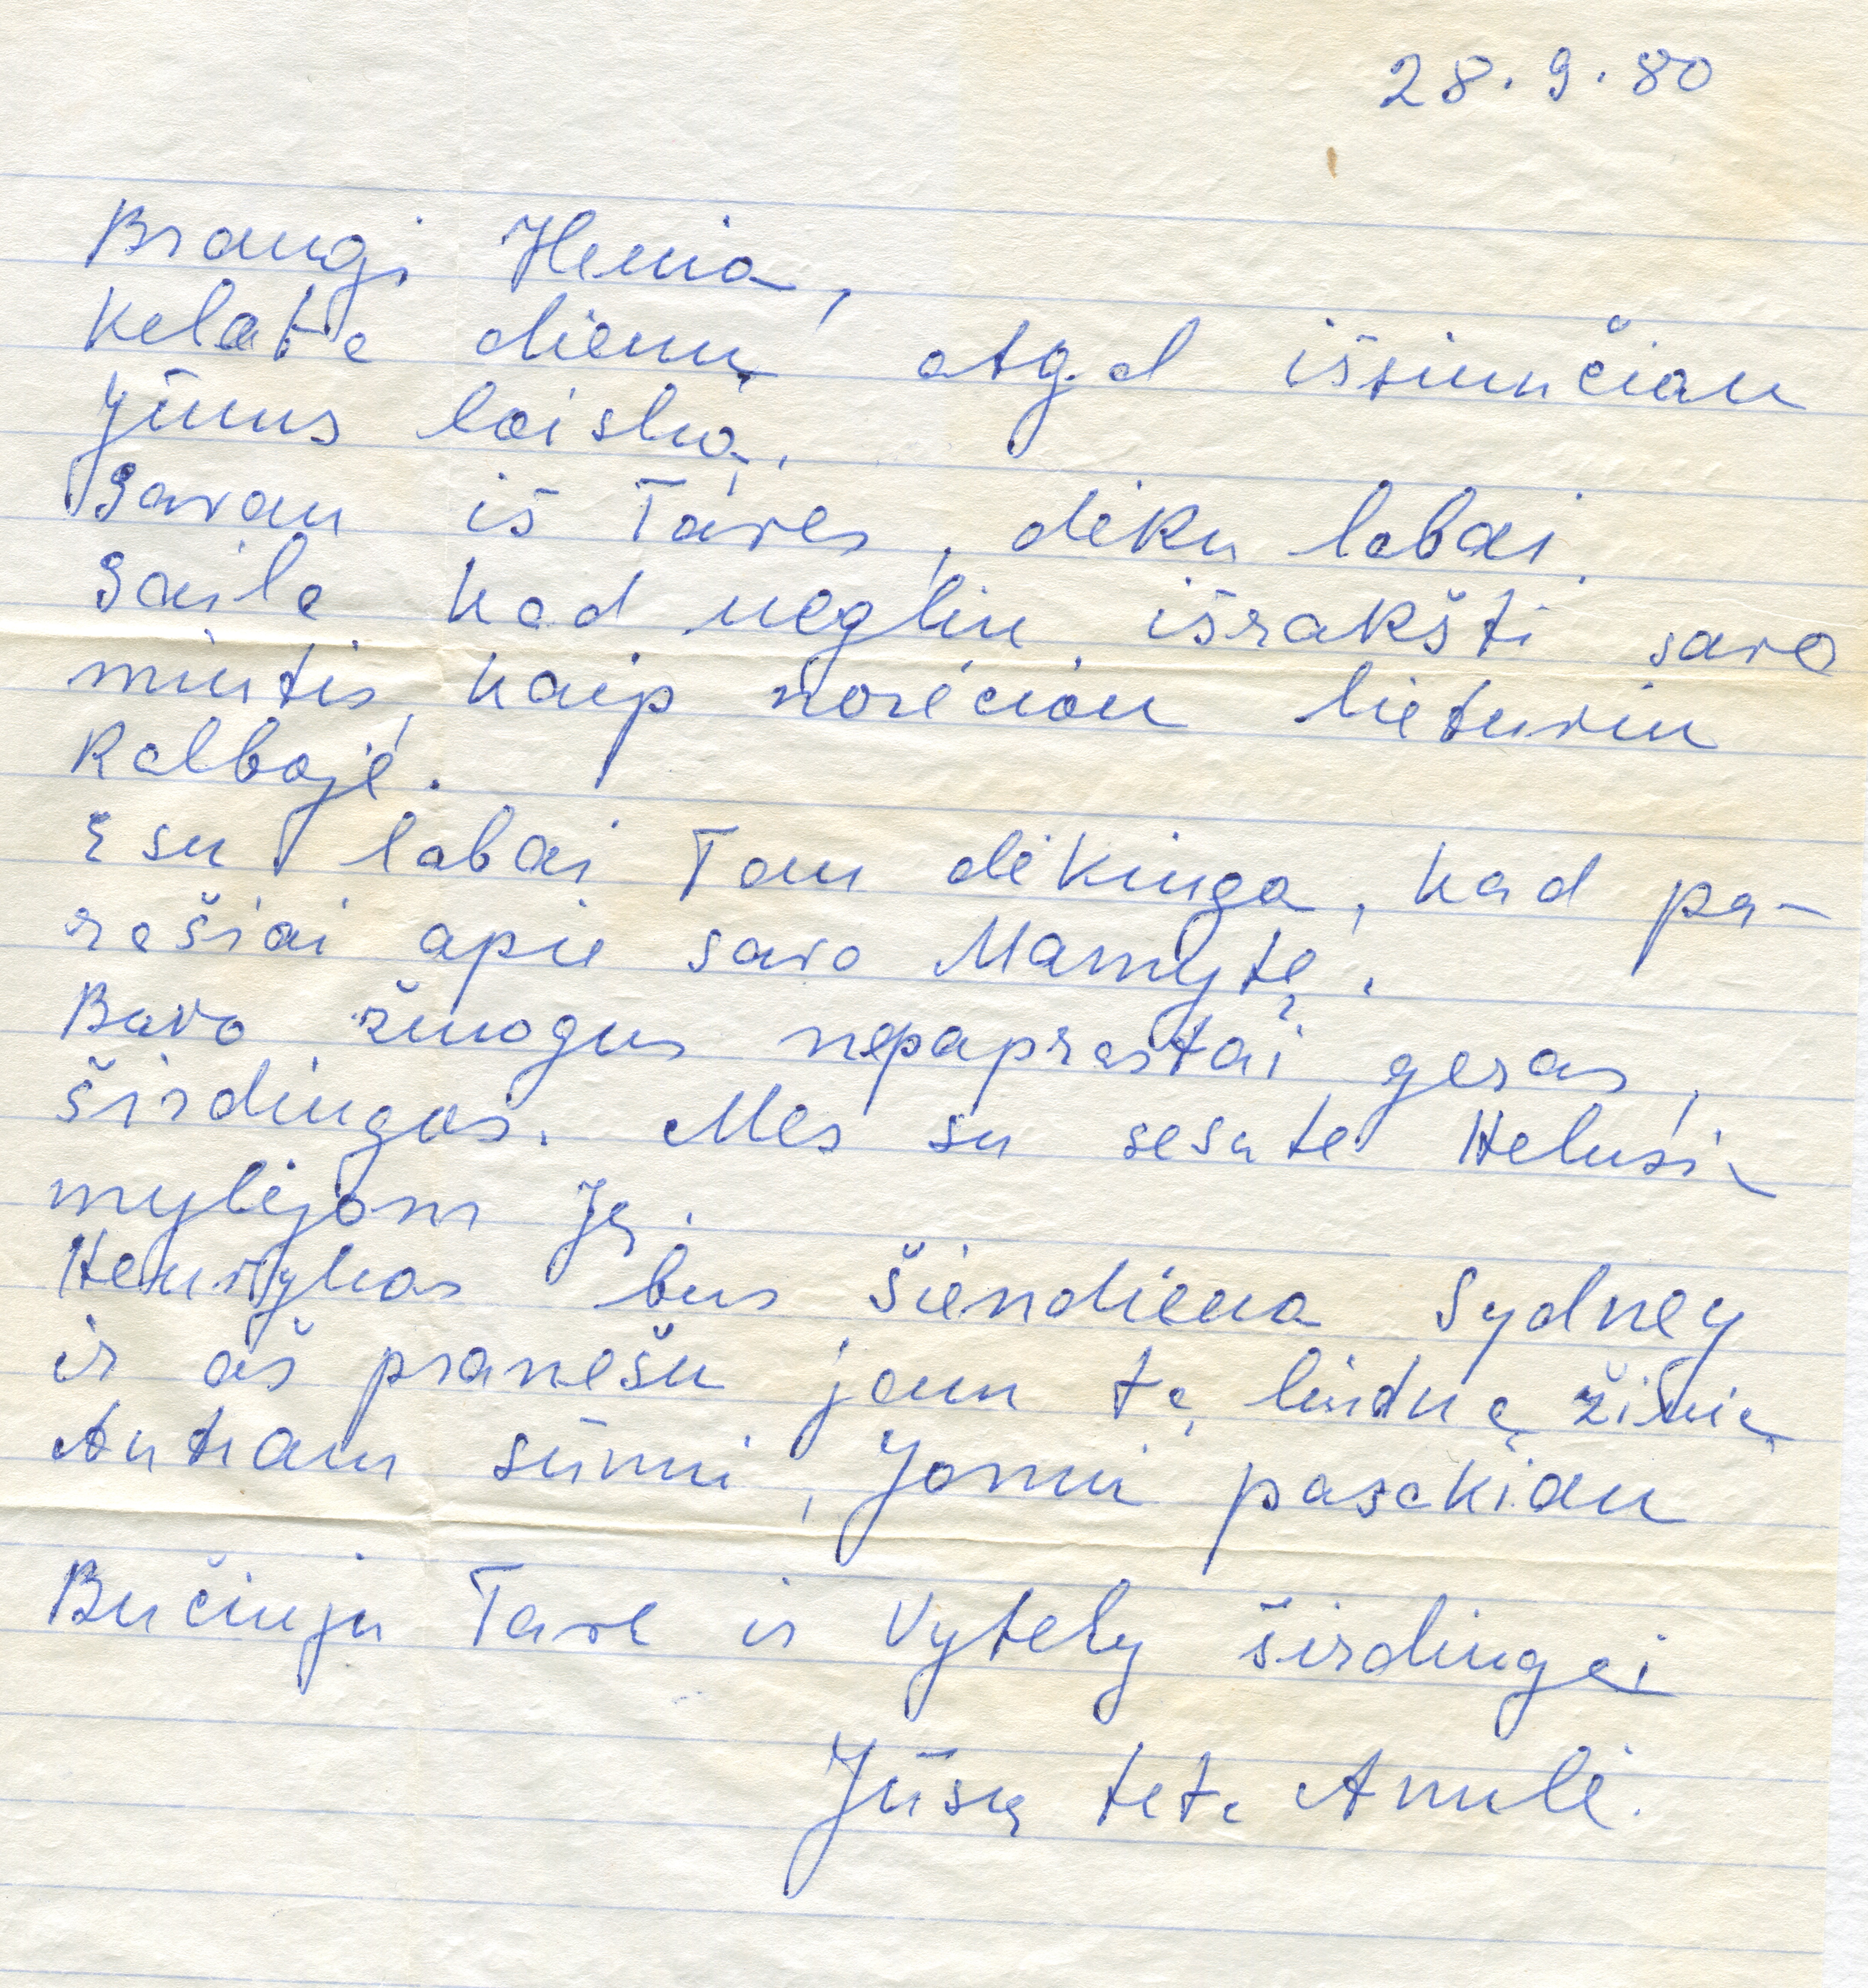 28.9.80
Brangi Henia,
Kelate dienų atgal išsiunčiau
Jūms laišką.
Gavau iš Taves, dėku labai.
Gaila kad negliu išrakšti savo
mintis, kaip norėciau lietuviu
Kalboje.
Esu labai Tau dėkinga, kad pa-
rašiai apie savo Mamytę.
Bavo žmogus nepaprastai geras,
širdingas. Mes su sesute Helusia
mylėjom Ją.
Henrykas bus šiendiena Sydney
ir aš pranešu jam tą liudną žinią
Antram sūnui, Jonui pasakiau
Bučiuju Tave ir Vytely širdingai
Jūsų teta Anulė.